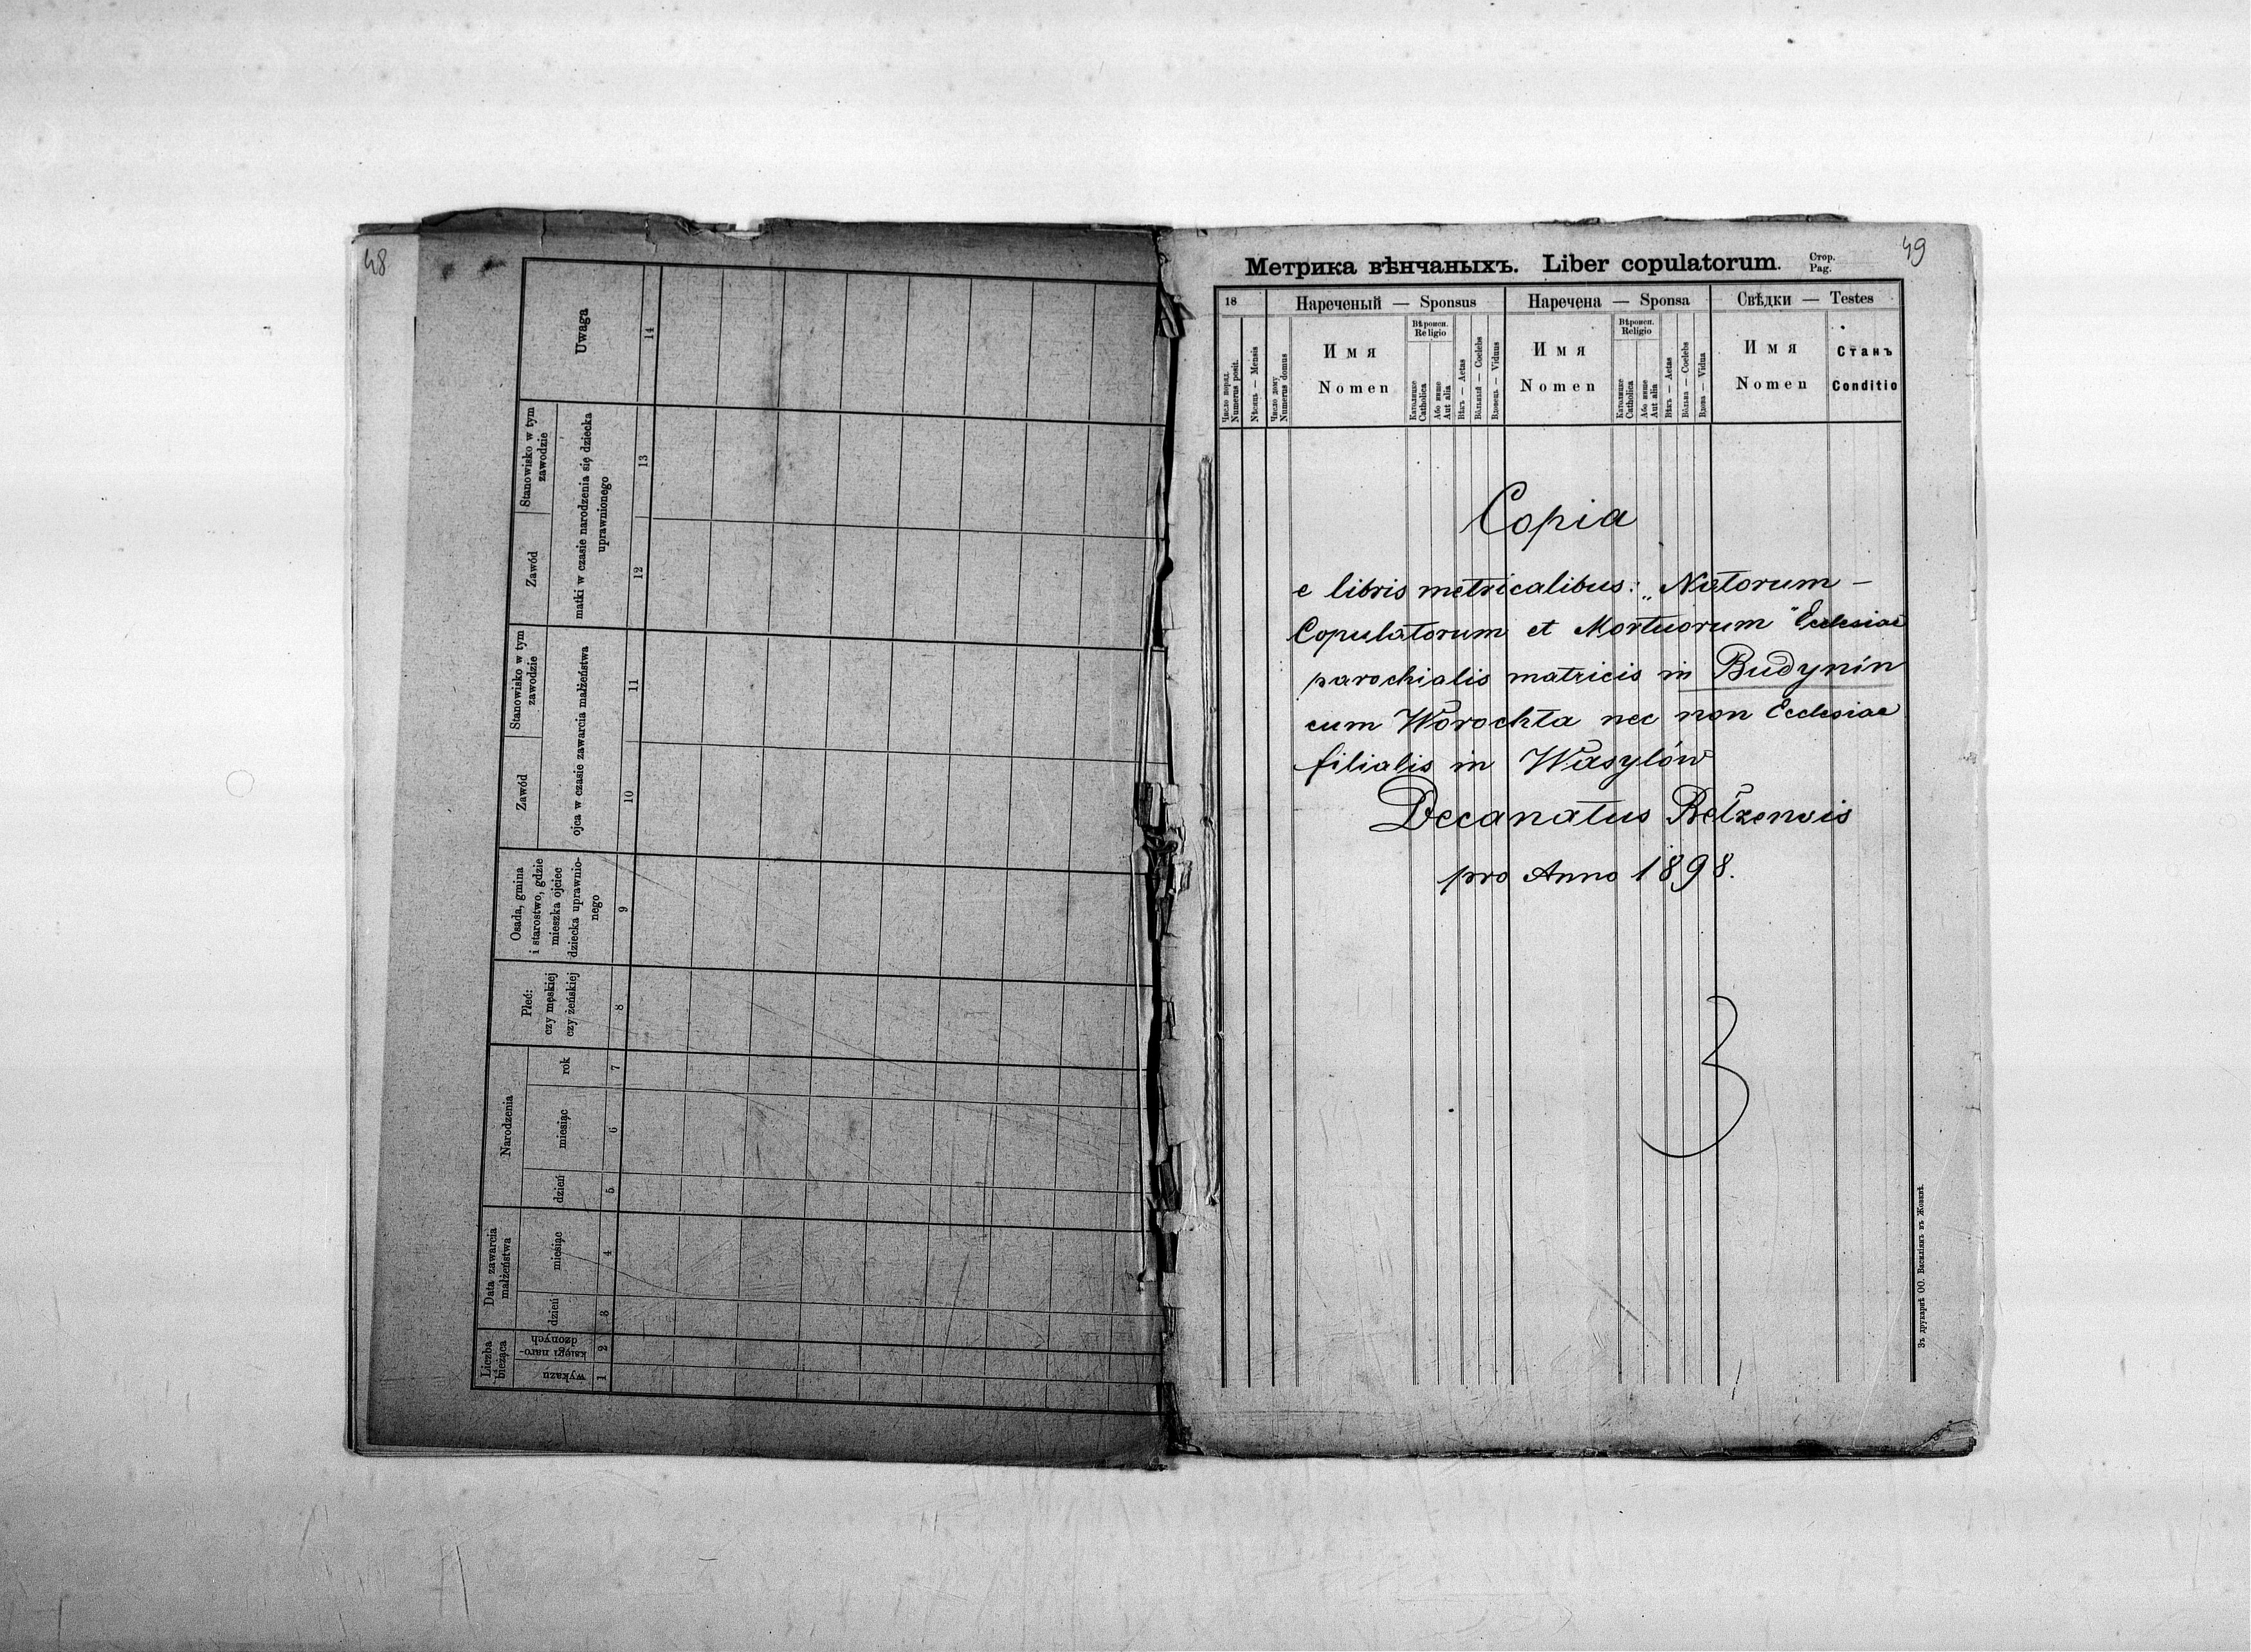 48
Uwaga
14
Stanowisko w tym
zawodzie
Zawód
matki w czasie narodzenia się dziecka
uprawnionego
13
12
Stanowisko w tym
zawodzie
Zawód
ojca w czasie zawarcia małżeństwa
11
10
Osada, gmina
i starostwo, gdzie
mieszka ojciec
dziecka uprawnio-
nego
9
Płeć:
czy męskiej
czy żeńskiej
8
Narodzenia
rok
7
miesiąc
6
dzień
5
Data zawarcia
małżeństwa
miesiąc
4
dzień
3
Liczba
bieżąca
księgi naro-
dzonych
2
wykazu
1
49
Метрика вѣнчаныхъ. Liber copulatorum.
Стор.
Pag.
18
Нареченый — Sponsus
Наречена — Sponsa
Свѣдки — Testes
Число поряд.
Numerus posit.
Мѣсяць — Mensis
Число дому
Numerus domus
Имя
Nomen
Вѣроисп.
Religio
Католике
Catholica
Або инше
Aut alia
Вѣкъ — Aetas
Вôльный — Coelebs
Вдовець — Viduus
Имя
Nomen
Вѣроисп.
Religio
Католике
Catholica
Або инше
Aut alia
Вѣкъ — Aetas
Вôльна — Coelebs
Вдова — Vidua
Имя
Nomen
Станъ
Conditio
Copia
e libris metricalibus: „Natorum —
Copulatorum et Mortuorum" Ecclesiae
parochialis matricis in Budynin
cum Worochta nec non Ecclesiae
filialis in Wasylów
Decanatus Bełzensis
pro Anno 1898.
3
Зъ друкарнѣ ОО. Василіянъ въ Жовквѣ.